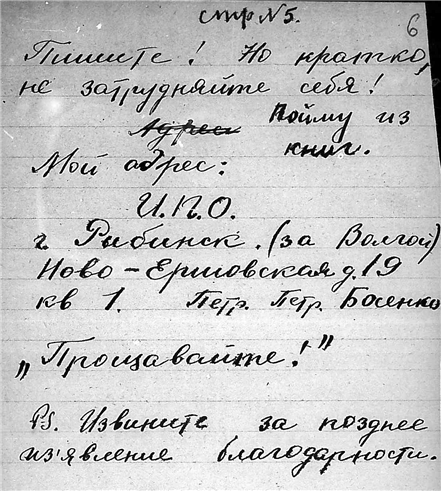 стр № 5.
6
Пишите! Но кратко,
не затрудняйте себя!
Адрес Пойму из
книг.
Мой адрес:
И.П.О.
г. Рыбинск. (за Волгой)
Ново-Ершовская д. 19
кв 1. Петр. Петр. Босенко
„Прощавайте!”
PS. Извините за позднее
из'явление благодарности.